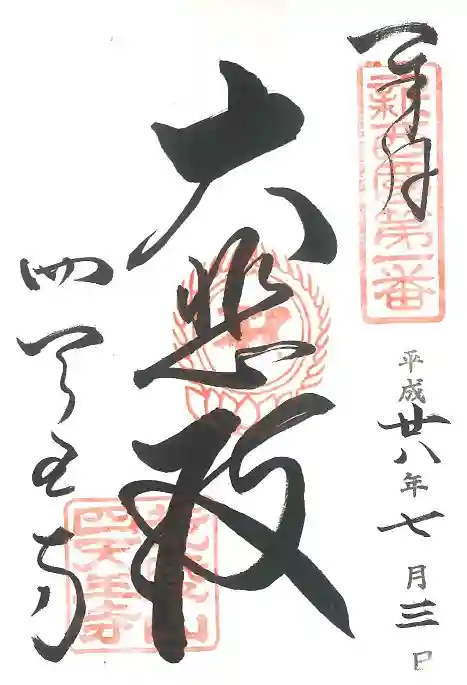 奉拝
新西国第一番
平成廿八年七月三日
大悲殿
四天王寺
荒陵山
四天王寺